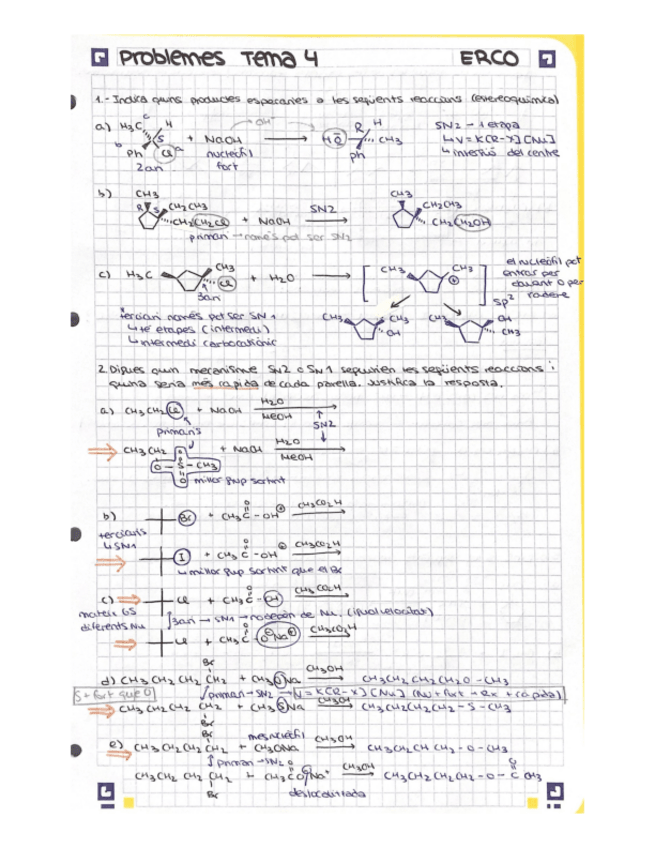 Problemes Tema 4 ERCO
1.- Indica quins productes esperaries a les següents reaccions (estereoquímica)
a) H3C H S Ph Cl + NaOH → HO R H CH3 Ph
OH-
c b a
2an nucleòfil fort
SN2 - 1 etapa
↳ V = K[R-X][Nu]
↳ inversió del centre
b) CH3 R S CH2CH3 CH2CH2Cl + NaOH SN2 → CH3 CH2CH3 CH2CH2OH
primari → només pot ser SN2
c) H3C CH3 Cl + H2O → [ CH3 CH3 + ] sp2
3ari
el nucleòfil pot entrar per davant o per radere
terciari només pot ser SN1
↳ té etapes (intermedi)
↳ intermedi carbocatiònic
CH3 CH3 OH CH3 OH CH3
2. Digues quin mecanisme SN2 o SN1 seguirien les següents reaccions i
quina seria més ràpida de cada parella. Justifica la resposta.
a) CH3CH2Cl + NaOH H2O MeOH
primaris SN2
CH3CH2 O-S-CH3 O + NaOH H2O MeOH
millor grup sortint
b) Br + CH3C-OH O CH3CO2H
terciaris
↳ SN1
I + CH3C-OH O CH3CO2H
↳ millor grup sortint que el Br
c) Cl + CH3C-OH O CH3CO2H
mateix GS
diferents Nu
3ari → SN1 → no depèn de Nu. (igual velocitat)
Cl + CH3C-O- Na+ O CH3CO2H
d) CH3CH2CH2CH2 Br + CH3ONa CH3OH → CH3CH2CH2CH2O-CH3
S + fort que O
primari → SN2 → V = K[R-X][Nu] (Nu + fort → Rx + ràpida)
CH3CH2CH2CH2 Br + CH3SNa CH3OH → CH3CH2CH2CH2-S-CH3
e) CH3CH2CH2CH2 Br + CH3ONa CH3OH → CH3CH2CH CH2-O-CH3
més nucleòfil
primari → SN2
CH3CH2CH2CH2 Br + CH3CO2-Na+ CH3OH → CH3CH2CH2CH2-O-C O CH3
deslocalitzada